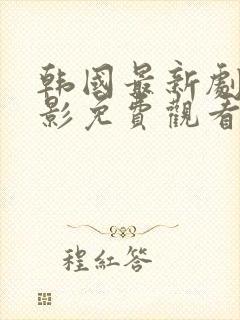 韩國最新劇
影免費觀看
程紅答